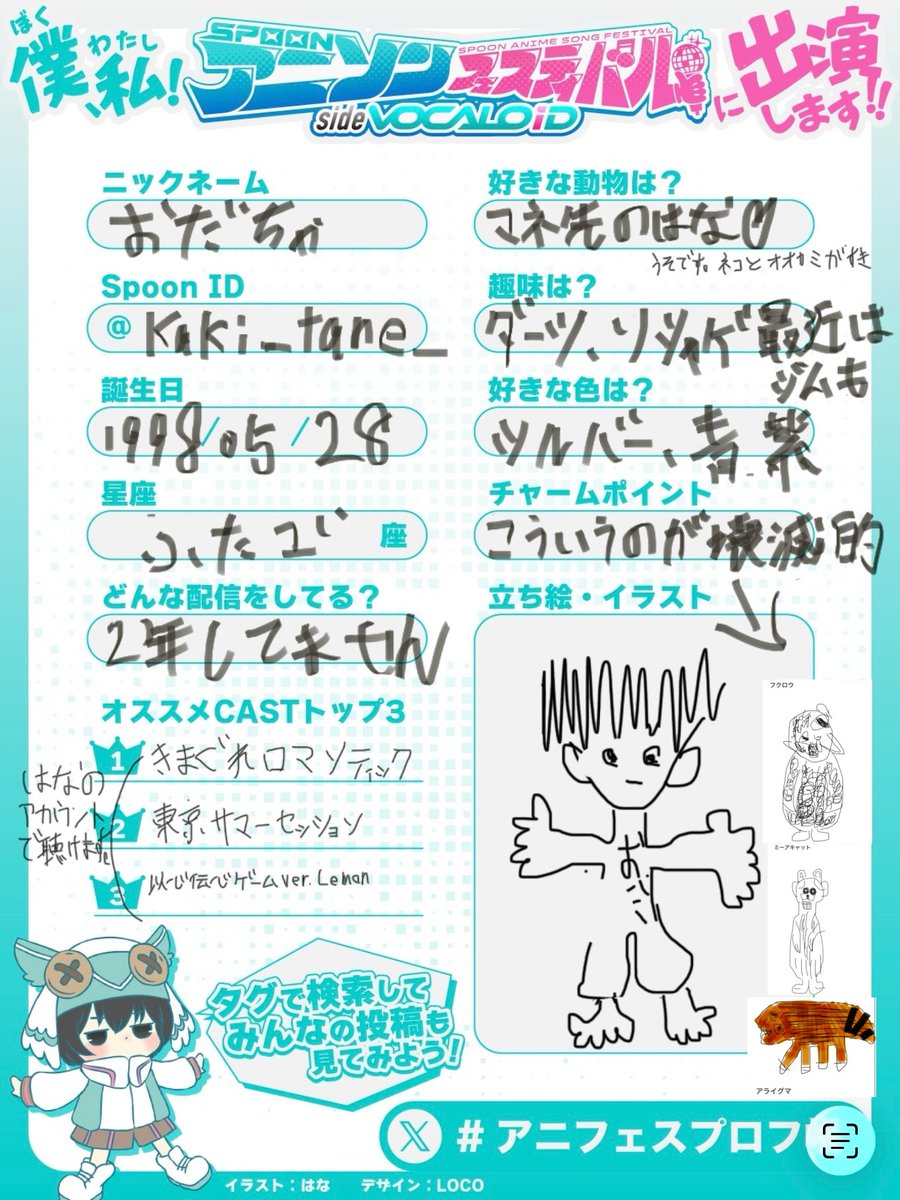 ぼく わたし
僕、私!
SPOON
アニソン
SPOON ANIME SONG FESTIVAL
フェスティバル
side VOCALOiD
に出演します!!
ニックネーム
おだちゃ
Spoon ID
@ Kaki_tane_
誕生日
1998/05/28
星座
ふたご 座
どんな配信をしてる?
2年してません
オススメCASTトップ3
1 きまぐれロマンティック
2 東京サマーセッション
3 以心伝心ゲームver.Lemon
はなの
アカウント
で聴けます
好きな動物は?
マネ先のはな♡
うそです。ネコとオオカミがすき
趣味は?
ダーツ、ソシャゲ 最近は
ジムも
好きな色は?
シルバー、青、紫
チャームポイント
こういうのが壊滅的
立ち絵・イラスト
お
フクロウ
ミーアキャット
アライグマ
タグで検索して
みんなの投稿も
見てみよう!
X # アニフェスプロフ
イラスト:はな デザイン:LOCO